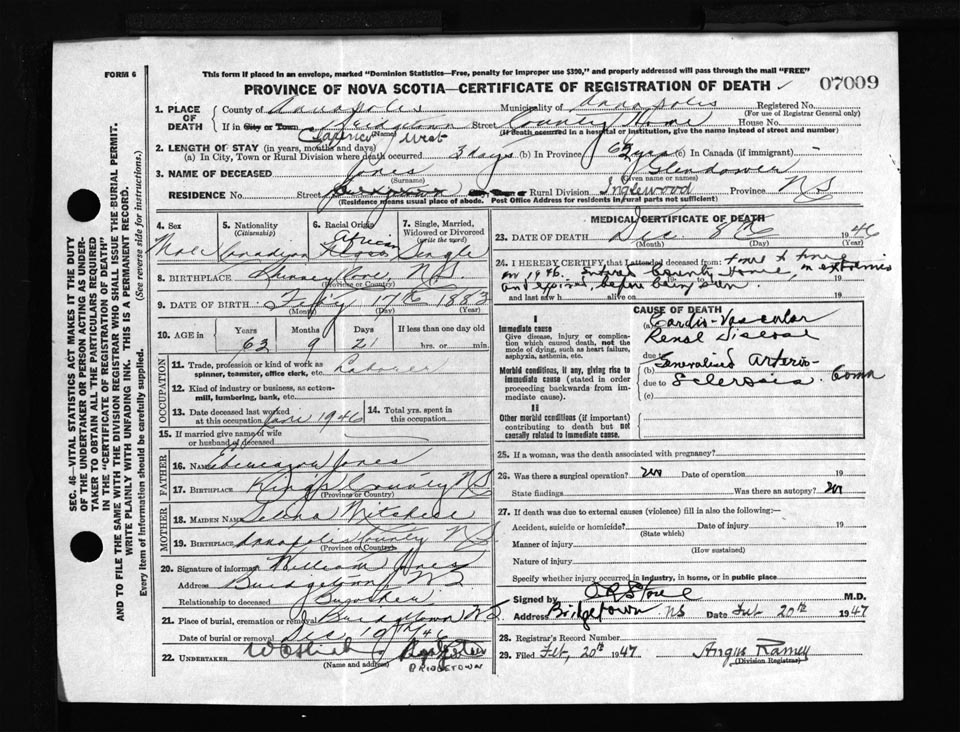 FORM 6
This form if placed in an envelope, marked "Dominion Statistics—Free, penalty for improper use $390," and properly addressed will pass through the mail "FREE"
PROVINCE OF NOVA SCOTIA—CERTIFICATE OF REGISTRATION OF DEATH
07009
1. PLACE OF DEATH
County of Annapolis Municipality of Annapolis Registered No.
(For use of Registrar General only)
If in City or Town Bridgetown Street County Home House No.
(Name) (If death occurred in a hospital or institution, give the name instead of street and number)
Clarence West
2. LENGTH OF STAY (in years, months and days)
(a) In City, Town or Rural Division where death occurred 3 days (b) In Province 63 yrs (c) In Canada (if immigrant)
3. NAME OF DECEASED Jones Glendower
(Surname) (Given name or names)
RESIDENCE No. Street Bridgetown City or Town or Rural Division Inglewood Province NS
(Residence means usual place of abode. Post Office Address for residents in rural parts not sufficient)
SEC. 46—VITAL STATISTICS ACT MAKES IT THE DUTY
OF THE UNDERTAKER OR PERSON ACTING AS UNDER-
TAKER TO OBTAIN ALL THE PARTICULARS REQUIRED
IN THE "CERTIFICATE OF REGISTRATION OF DEATH"
AND TO FILE THE SAME WITH THE DIVISION REGISTRAR WHO SHALL ISSUE THE BURIAL PERMIT.
WRITE PLAINLY WITH UNFADING INK. THIS IS A PERMANENT RECORD.
Every item of information should be carefully supplied. (See reverse side for instructions.)
4. Sex
Male
5. Nationality
(Citizenship)
Canadian
6. Racial Origin
African
7. Single, Married, Widowed or Divorced
(write the word)
Single
8. BIRTHPLACE Cove, NS.
(Province or Country)
9. DATE OF BIRTH Feb'y 17th 1883
(Month) (Day) (Year)
10. AGE in Years Months Days If less than one day old
63 9 21 hrs. or min.
OCCUPATION
11. Trade, profession or kind of work as Laborer
spinner, teamster, office clerk, etc.
12. Kind of industry or business, as cotton-
mill, lumbering, bank, etc.
13. Date deceased last worked at this occupation 1946
14. Total yrs. spent in this occupation
15. If married give name of wife
or husband of deceased
FATHER
16. NAME Jones
17. BIRTHPLACE Kings County NS
(Province or Country)
MOTHER
18. MAIDEN NAME Selena Mitchell
19. BIRTHPLACE Annapolis County NS
(Province or Country)
20. Signature of informant William Jones
Address Bridgetown NS
Relationship to deceased
21. Place of burial, cremation or removal Bridgetown NS
Date of burial or removal Dec 10th 46
22. UNDERTAKER
(Name and address)
BRIDGETOWN
MEDICAL CERTIFICATE OF DEATH
23. DATE OF DEATH Dec. 8th 1946
(Month) (Day) (Year)
24. I HEREBY CERTIFY that I attended deceased from: time to time
in 1946. Entered County Home, in extremis
and expired before being seen.
and last saw h alive on 19
CAUSE OF DEATH
I
Immediate cause
Give disease, injury or complica-
tion which caused death, not the
mode of dying, such as heart failure,
asphyxia, asthenia, etc.
(a) Cardio-Vascular
Renal Disease
due to
Morbid conditions, if any, giving rise to
immediate cause (stated in order
proceeding backwards from im-
mediate cause).
(b) Generalised Arterio-
due to Sclerosis. Coma
(c)
II
Other morbid conditions (if important)
contributing to death but not
causally related to immediate cause.
25. If a woman, was the death associated with pregnancy?
26. Was there a surgical operation? no Date of operation 19
State findings Was there an autopsy? no
27. If death was due to external causes (violence) fill in also the following:
Accident, suicide or homicide? Date of injury 19
(State which)
Manner of injury
(How sustained)
Nature of injury
Specify whether injury occurred in industry, in home, or in public place
Signed by M.D.
Address Bridgetown NS Date Feb 20th 1947
28. Registrar's Record Number
29. Filed Feb, 20th 1947 Angus Ramey
(Division Registrar)